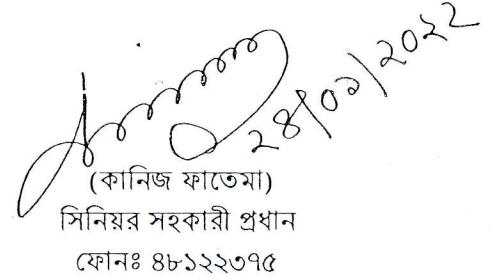 ২৪/০১/২০২২
(কানিজ ফাতেমা)
সিনিয়র সহকারী প্রধান
ফোনঃ ৪৮১২২৩৭৫